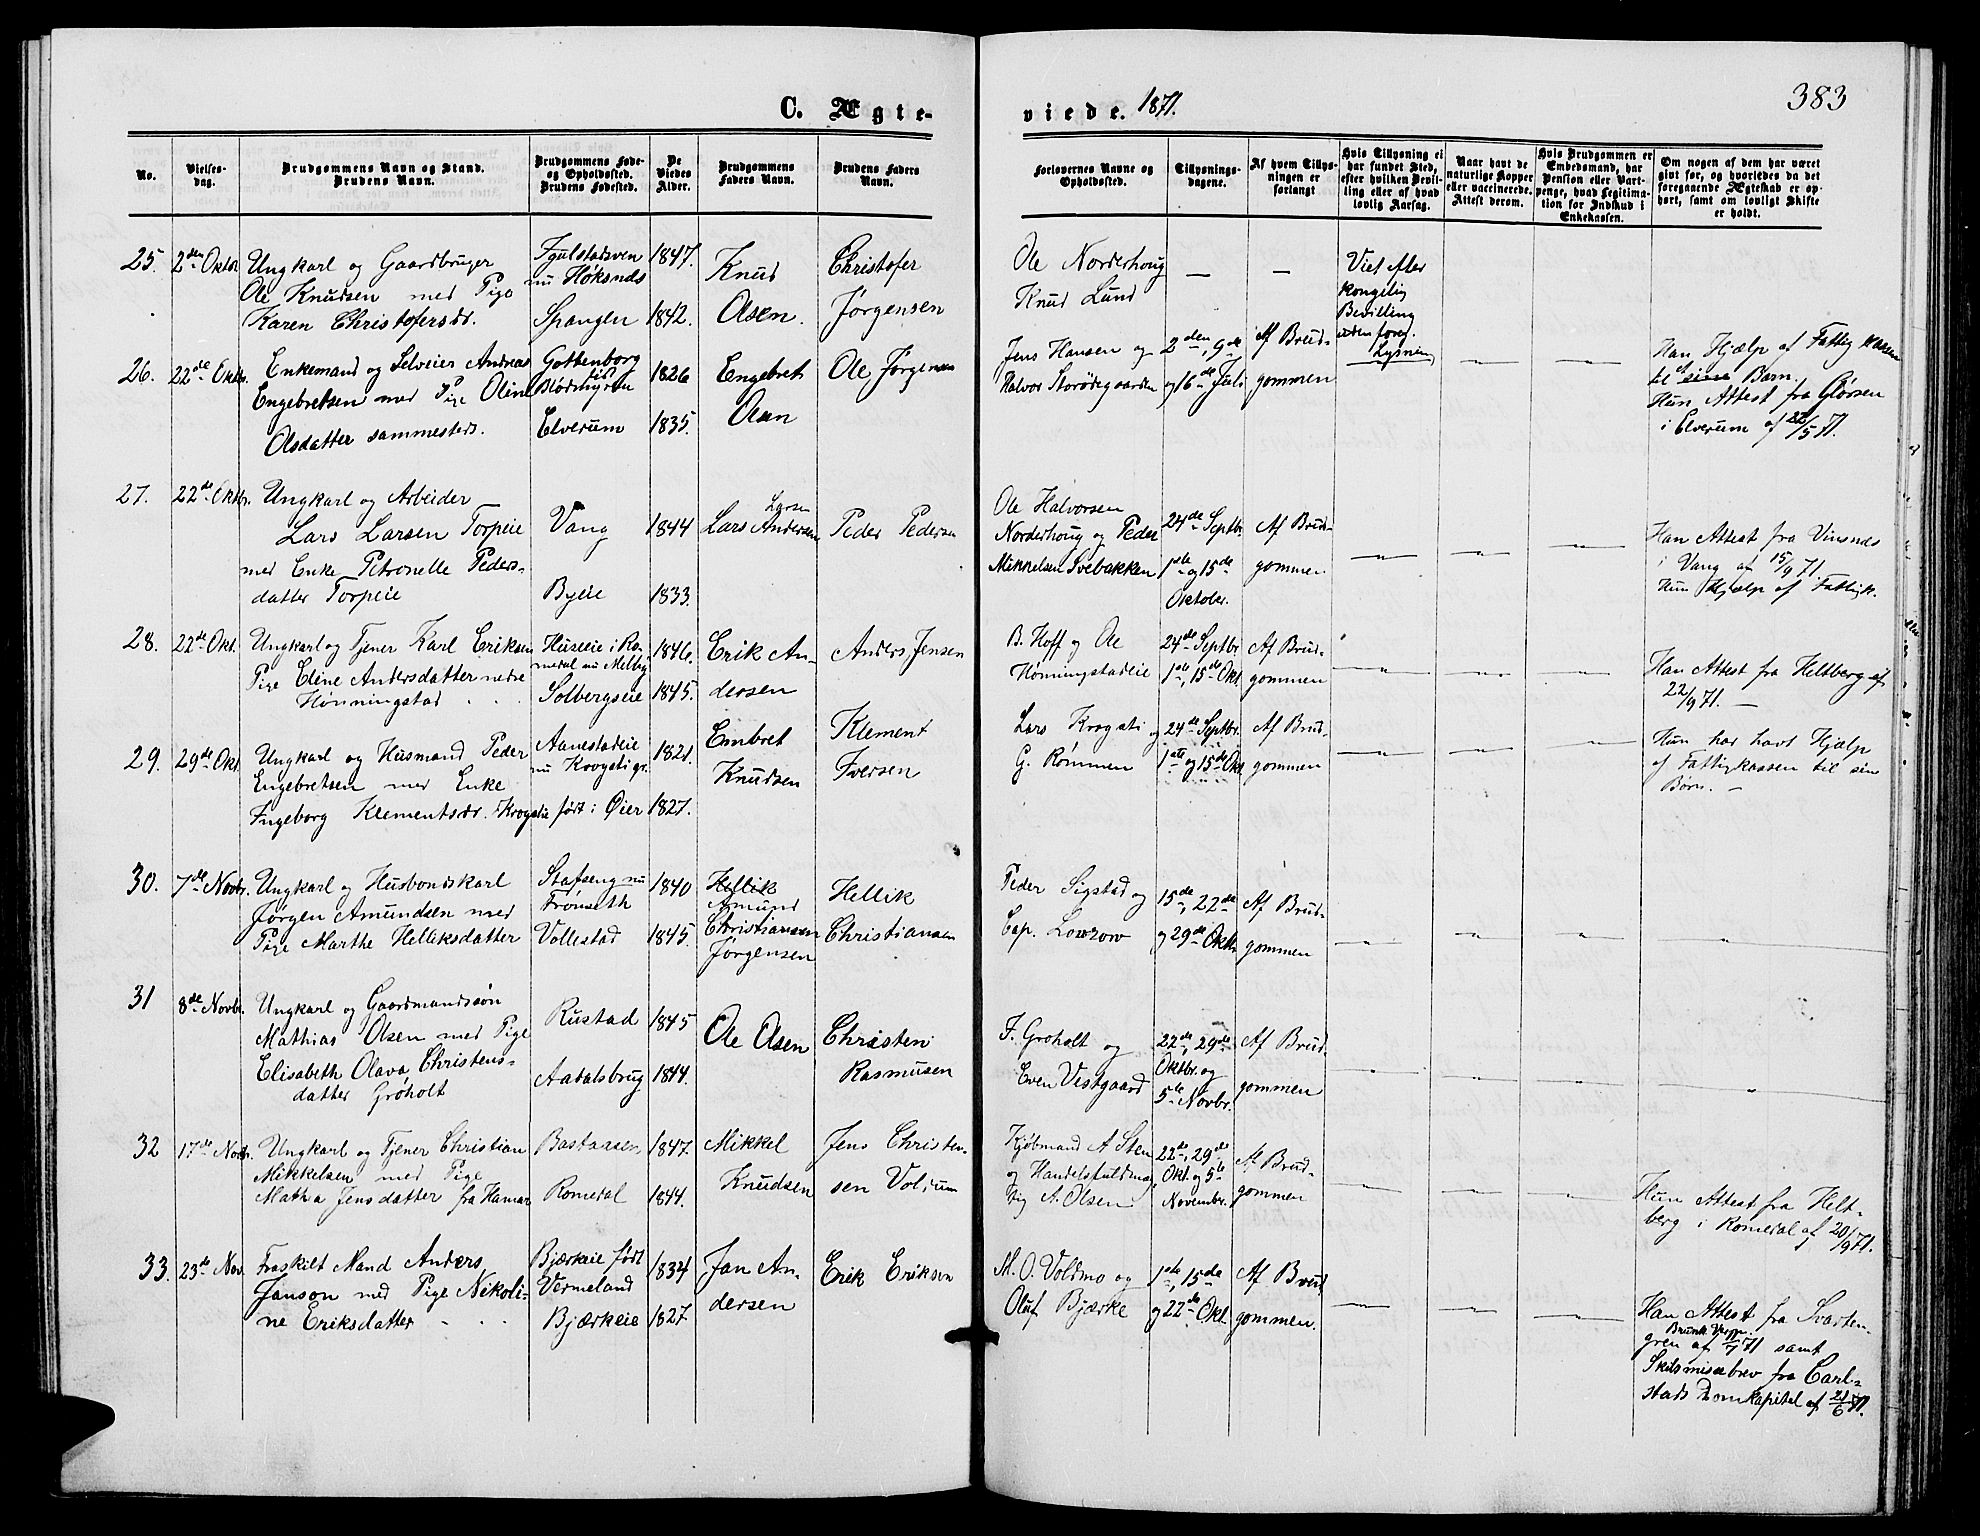 C. Ægte-
viede. 1871.
383
No.
Vielses-
dag.
Brudgommens Navn og Stand.
Brudens Navn.
Brudgommens Føde-
og Opholdssted.
Brudens Fødested.
De
Viedes
Alder.
Brudgommens
Faders Navn.
Brudens Faders
Navn.
Forlovernes Navne og
Opholdssted.
Tillysnings-
dagene.
Af hvem Tillys-
ningen er
forlangt.
Hvis Tillysning ei
har fundet Sted,
efter hvilken Bevil-
ling eller af hvad
lovlig Aarsag.
Naar havt de
naturlige Kopper
eller vaccinerede.
Attest derom.
Hvis Brudgommen er
Embedsmand, har
Pension eller Vart-
penge, hvad Legitima-
tion for Indskud i
Enkekassen.
Om nogen af dem har været
gift før, og hvorledes da det
foregaaende Ægteskab er op-
hørt, samt om lovligt Skifte
er holdt.
25.
2den Oktbr
Ungkarl og Gaardbruger
Ole Knudsen med Pige
Karen Christofersdr.
nu Høksnds
Spangen
1847.
1842.
Knud
Olsen.
Christofer
Jørgensen
Ole Norderhoug
Knud Lund
—
—
Viet efter
kongelig
Bevilling
uden foreg.
Lysning
26.
22de Oktbr.
Enkemand og Selveier Andreas
Engebretsen med Pige Oline
Olsdatter sammesteds.
Gottenborg
født
Elverum
1826
1835.
Engebret
Olsen
Ole Jørgensen
Jens Hansen og
Halvor Storødegaarden
2den, 9de
og 16de Juli
Af Brud-
gommen
Han Hjælp af Fattigkassen
til sine Børn.
Hun Attest fra Glørsen
i Elverum af 22/5 71.
27.
22de Oktbr.
Ungkarl og Arbeider
Lars Larsen Torpeie
med Enke Petronelle Peders-
datter Torpeie
Vang
Byeie
1844
1833.
Larsen
Lars Andersen
Peder Pedersen
Ole Halvorsen
Norderhoug og Peder
Mikkelsen Svebakken
24de Septbr.
1ste og 15de
Oktober.
Af Brud-
gommen
Han Attest fra Vinsnes
i Vang af 15/9 71.
Hun Hjælp af Fattigk.
28.
22de Okt.
Ungkarl og Tjener Karl Eriksen
Pige Eline Andersdatter nedre
Hønningstad
Huseie i Ro-
medal nu Melby
Solbergseie
1846.
1845.
Erik An-
dersen
Anders Jensen
B. Hoff og Ole
Hønningstadeie
24de Septbr
1ste, 15de Okt.
Af Brud-
gommen
Han Attest fra Heltberg af
22/9 71. —
29.
29de Okt.
Ungkarl og Husmand Peder
Engebretsen med Enke
Ingeborg Klementsdr. Krogstie født i Øier
Aanestadeie
1821
1827.
Embret
Knudsen
Klement
Iversen
Lars Krogsti og
G. Rømmen
24de Septbr.
1ste og 15de Okt.
Af Brud-
gommen
Hun har havt Hjælp
af Fattigkassen til sin
Børn. —
30.
7de Novbr.
Ungkarl og Husbondskarl
Jørgen Amundsen med
Pige Marthe Helliksdatter
Stafseng nu
Frønseth
Vollestad
1840
1845.
Hellik
Amund
Christiansen
Jørgensen
Hellik
Christiansen
Peder Sigstad og
Cap. Lowzow
15de, 22de
og 29de Oktbr.
Af Brud-
gommen
31
8de Novbr.
Ungkarl og Gaardmandssøn
Mathias Olsen med Pige
Elisabeth Olava Christens-
datter Grøholt
Rustad
Aadalsbrug
1845
1844.
Ole Olsen
Christen
Rasmusen
F. Groholt og
Even Vestgaard
22de, 29de
Oktbr. og
5te Novbr.
Af Brud-
gommen
32
17de Novbr.
Ungkarl og Tjener Christian
Mikkelsen med Pige
Mathea Jensdatter fra Hamar
Romedal
1847.
1844.
Mikkel
Knudsen
Jens Christen-
sen Volrum
Kjøbmand A Sten
og Handelsfuldmæg
tig A. Olsen
22de, 29de
Okt. og 5te
November.
Af Brud-
gommen
Hun Attest fra Helt-
berg i Romedal af 20/9 71.
33.
23de Nov.
Fraskilt Mand Anders
Janson med Pige Nikoli-
ne Eriksdatter
Bjærkeie født
Vermeland
Bjærkeie
1834
1827
Jan An-
dersen
Erik Eriksen
M. O. Voldmo og
Oluf Bjærke
1ste, 15de
og 22de Okt.
Af Brud
gommen.
Han Attest fra Svarten-
gren af 7 71 samt
Skilsmissebrev fra Carl-
stads Domkapitel af 21/6 71.